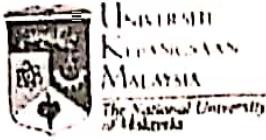 UNIVERSITI
KEBANGSAAN
MALAYSIA
The National University
of Malaysia